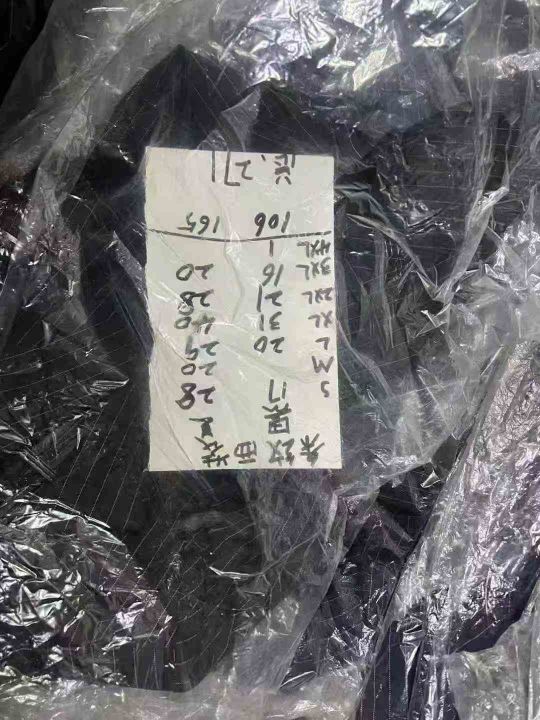 条纹西装
黑
S 17 28
M 20
L 20 29
XL 31 40
2XL 21 28
3XL 16 20
4XL 1
106 165
总:271